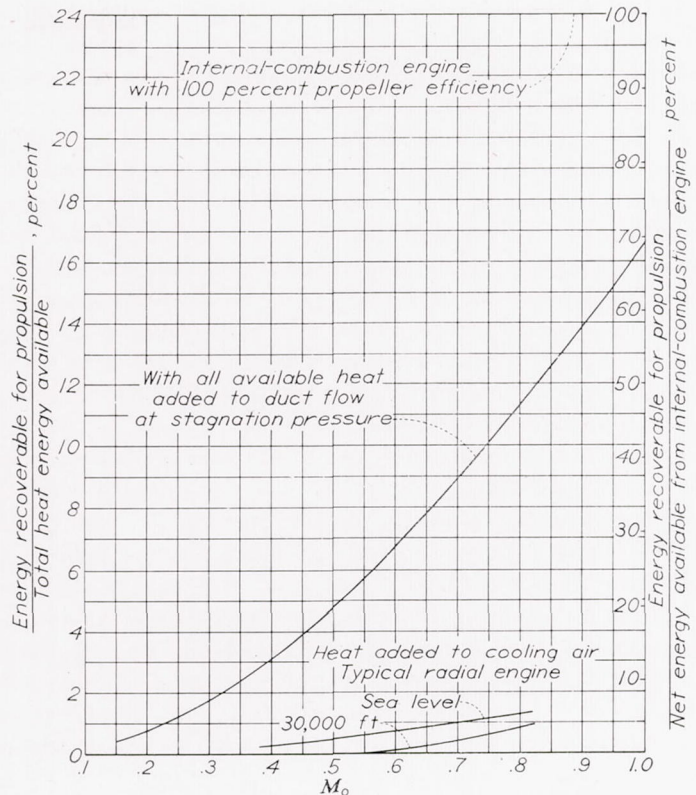 24
22
20
18
16
14
12
10
8
6
4
2
0
Energy recoverable for propulsion
Total heat energy available
, percent
Internal-combustion engine
with 100 percent propeller efficiency
With all available heat
added to duct flow
at stagnation pressure
Heat added to cooling air
Typical radial engine
Sea level
30,000 ft
.1 .2 .3 .4 .5 .6 .7 .8 .9 1.0
Mₒ
100
90
80
70
60
50
40
30
20
10
Energy recoverable for propulsion
Net energy available from internal-combustion engine
, percent